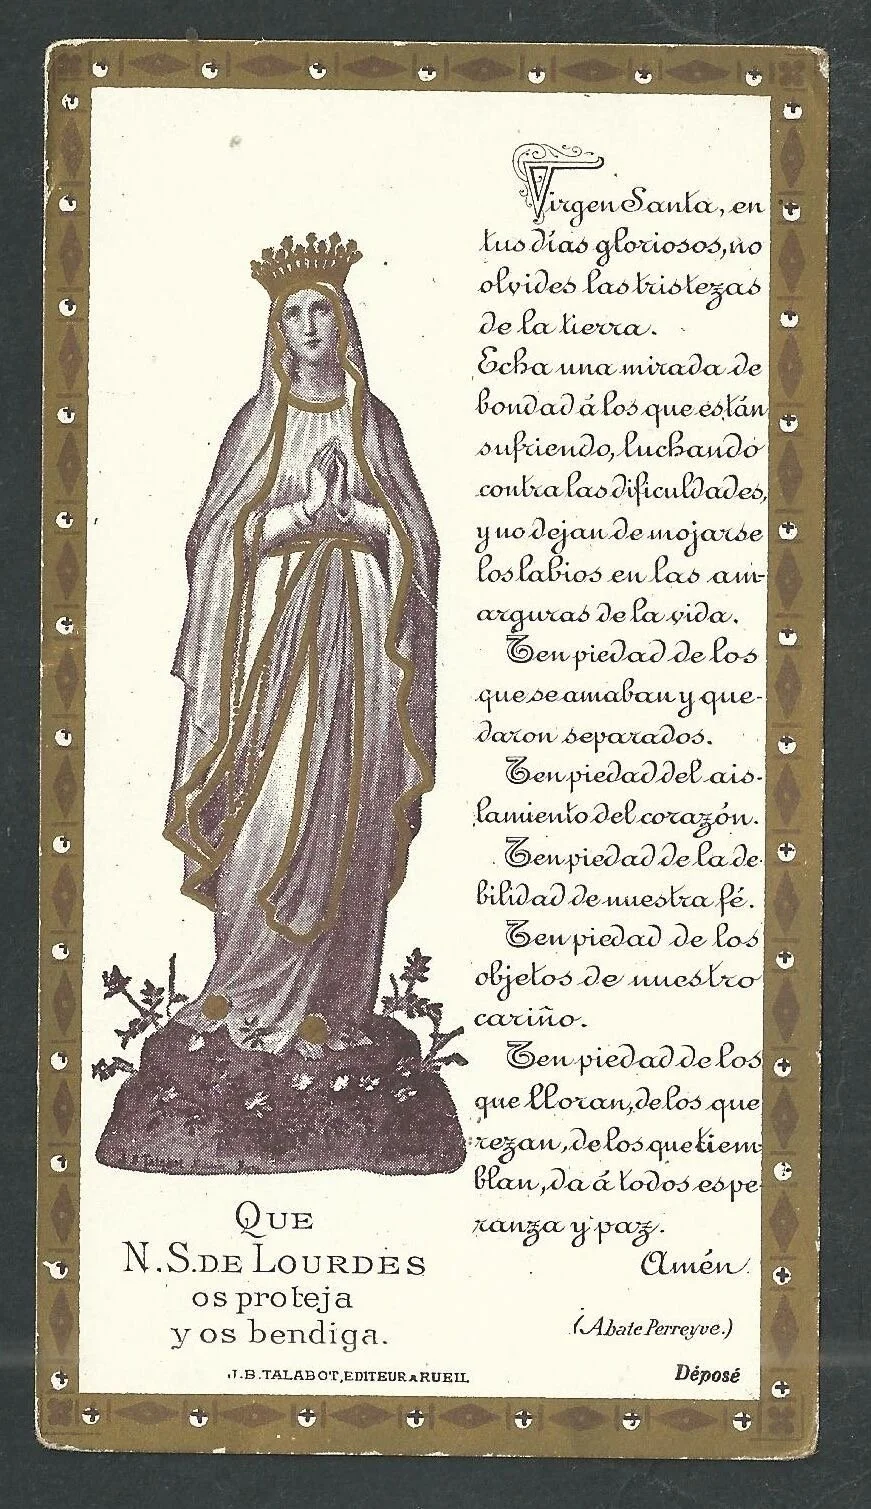 Virgen Santa, en
tus días gloriosos, no
olvides las tristezas
de la tierra.
Echa una mirada de
bondad á los que están
sufriendo, luchando
contra las dificuldades,
y no dejan de mojarse
los labios en las am-
arguras de la vida.
Ten piedad de los
que se amaban y que-
daron separados.
Ten piedad del ais-
lamiento del corazón.
Ten piedad de la de-
bilidad de nuestra fé.
Ten piedad de los
objetos de nuestro
cariño.
Ten piedad de los
que lloran, de los que
rezan, de los que tiem-
blan, da á todos espe-
ranza y paz.
Amén.
(Abate Perreyve.)
Déposé
QUE
N.S. DE LOURDES
os proteja
y os bendiga.
J.B. TALABOT, EDITEUR A RUEIL